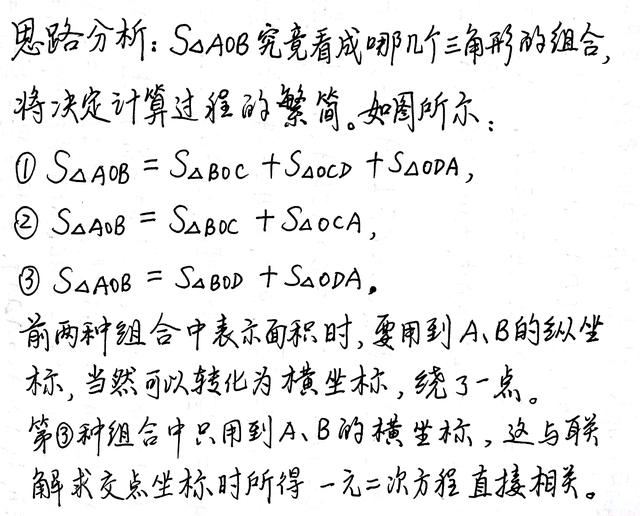 思路分析：S△AOB究竟看成哪几个三角形的组合，
将决定计算过程的繁简。如图所示：
① S△AOB = S△BOC + S△OCD + S△ODA，
② S△AOB = S△BOC + S△OCA，
③ S△AOB = S△BOD + S△ODA。
前两种组合中表示面积时，要用到A、B的纵坐
标，当然可以转化为横坐标，绕了一点。
第③种组合中只用到A、B的横坐标，这与联
解求交点坐标时所得一元二次方程直接相关。